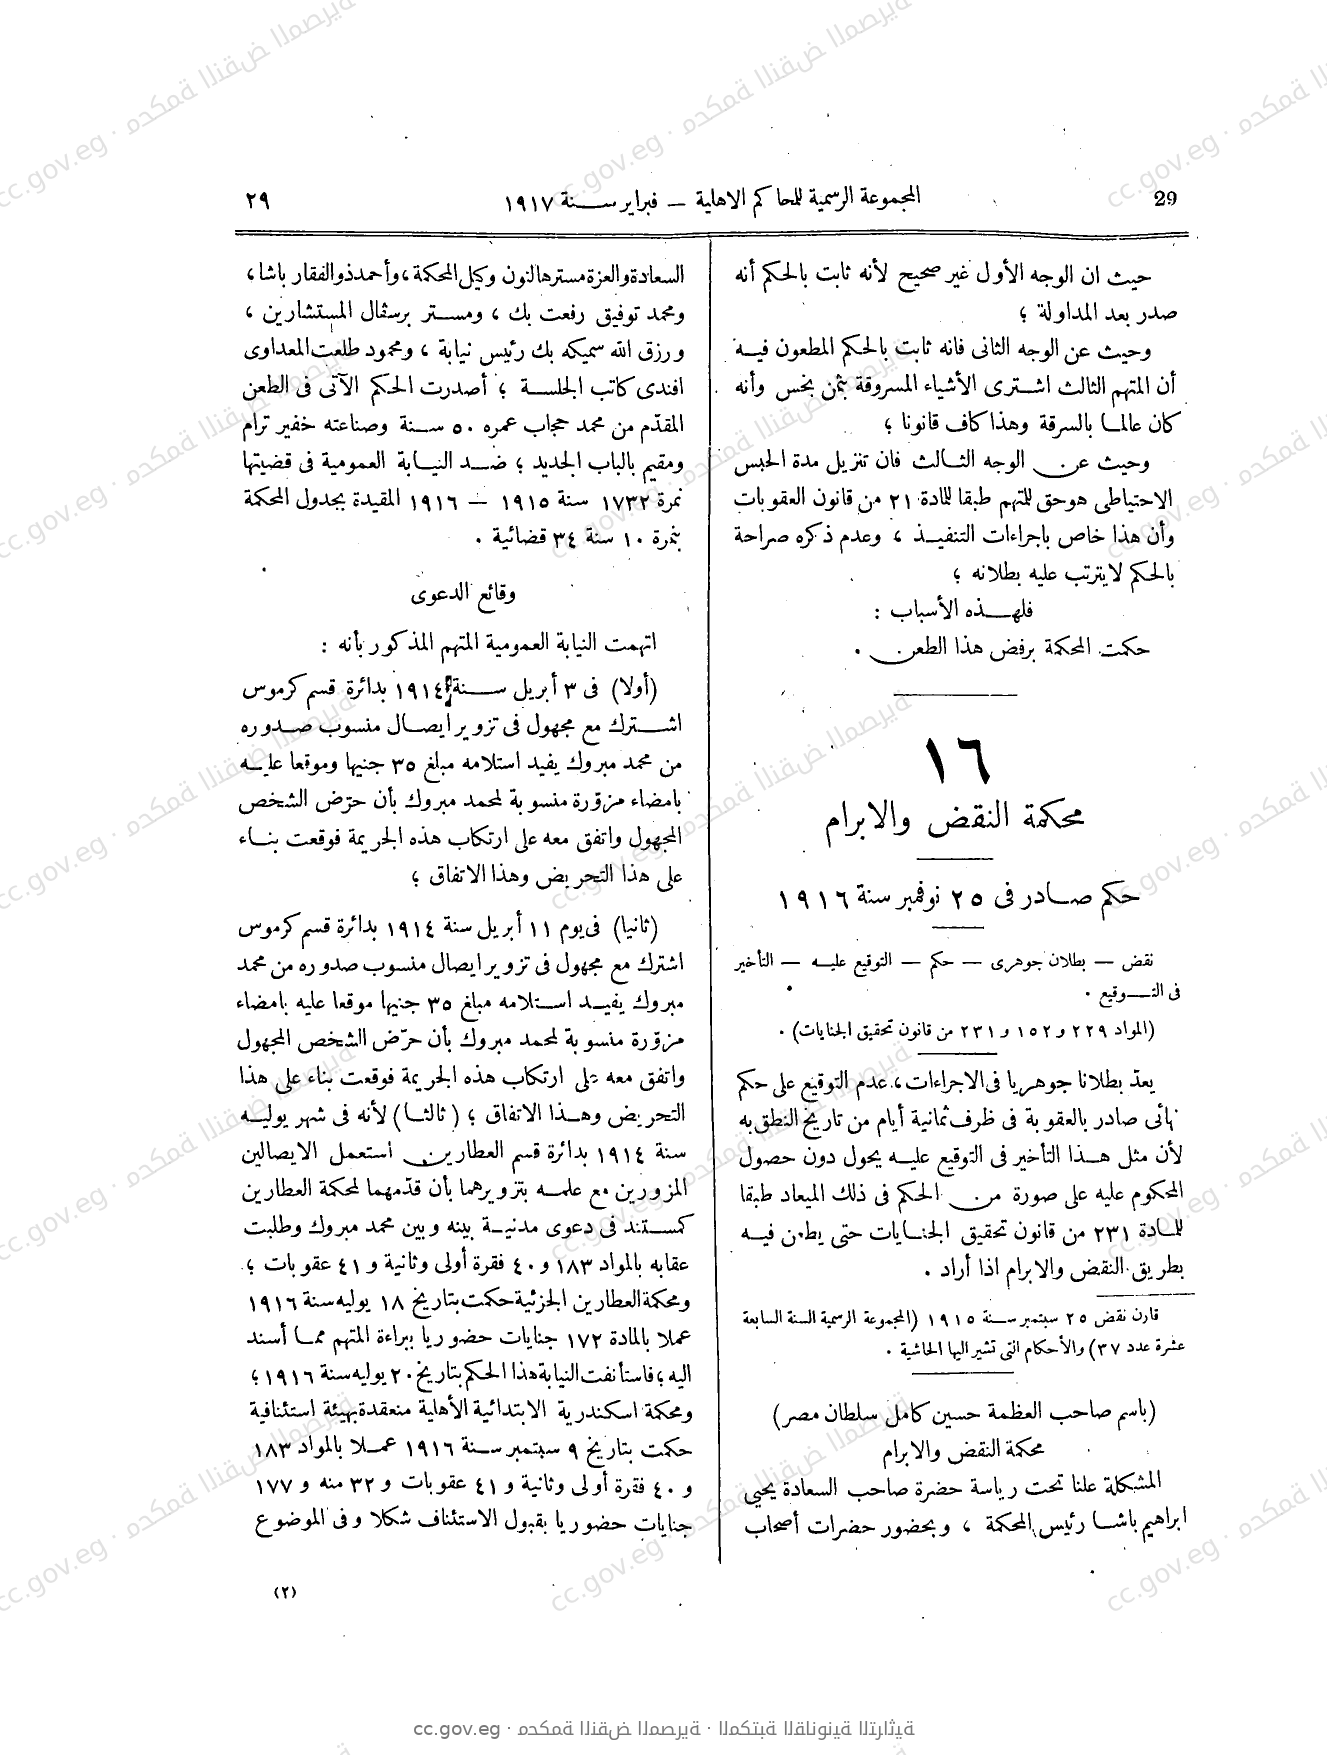 29
المجموعة الرسمية للمحاكم الاهلية – فبراير سنة ١٩١٧
٢٩
حيث ان الوجه الأول غير صحيح لأنه ثابت بالحكم أنه
صدر بعد المداولة ؛
وحيث عن الوجه الثانى فانه ثابت بالحكم المطعون فيه
أن المتهم الثالث اشترى الأشياء المسروقة بثمن بخس وأنه
كان عالما بالسرقة وهذا كاف قانونا ؛
وحيث عن الوجه الثالث فان تنزيل مدة الحبس
الاحتياطى هو حق للمتهم طبقا للمادة ٢١ من قانون العقوبات
وأن هذا خاص باجراءات التنفيذ ، وعدم ذكره صراحة
بالحكم لا يترتب عليه بطلانه ؛
فلهذه الأسباب :
حكمت المحكمة برفض هذا الطعن .
١٦
محكمة النقض والابرام
حكم صادر فى ٢٥ نوفمبر سنة ١٩١٦
نقض – بطلان جوهرى – حكم – التوقيع عليه – التأخير
فى التوقيع .
(المواد ٢٢٩ و ١٥٢ و ٢٣١ من قانون تحقيق الجنايات) .
يعدّ بطلانا جوهريا فى الاجراءات ، عدم التوقيع على حكم
نهائى صادر بالعقوبة فى ظرف ثمانية أيام من تاريخ النطق به
لأن مثل هذا التأخير فى التوقيع عليه يحول دون حصول
المحكوم عليه على صورة من الحكم فى ذلك الميعاد طبقا
للمادة ٢٣١ من قانون تحقيق الجنايات حتى يطعن فيه
بطريق النقض والابرام اذا أراد .
قارن نقض ٢٥ سبتمبر سنة ١٩١٥ (المجموعة الرسمية السنة السابعة
عشرة عدد ٣٧) والأحكام التى تشير اليها الحاشية .
(باسم صاحب العظمة حسين كامل سلطان مصر)
محكمة النقض والابرام
المشكلة علنا تحت رياسة حضرة صاحب السعادة يحيى
ابراهيم باشا رئيس المحكمة ، وبحضور حضرات أصحاب
السعادة والعزة مستر هالتون وكيل المحكمة ، وأحمد ذو الفقار باشا ،
ومحمد توفيق رفعت بك ، ومستر برسڤال المستشارين ،
ورزق الله سميكه بك رئيس نيابة ، ومحمود طلعت المعداوى
افندى كاتب الجلسة ؛ أصدرت الحكم الآتى فى الطعن
المقدّم من محمد حجاب عمره ٥٠ سنة وصناعته خفير ترام
ومقيم بالباب الجديد ؛ ضد النيابة العمومية فى قضيتها
نمرة ١٧٣٢ سنة ١٩١٥ – ١٩١٦ المقيدة بجدول المحكمة
بنمرة ١٠ سنة ٣٤ قضائية .
وقائع الدعوى
اتهمت النيابة العمومية المتهم المذكور بأنه :
(أولا) فى ٣ أبريل سنة ١٩١٤ بدائرة قسم كرموس
اشترك مع مجهول فى تزوير ايصال منسوب صدوره
من محمد مبروك يفيد استلامه مبلغ ٣٥ جنيها وموقعا عليه
بامضاء مزوّرة منسوبة لمحمد مبروك بأن حرّض الشخص
المجهول واتفق معه على ارتكاب هذه الجريمة فوقعت بناء
على هذا التحريض وهذا الاتفاق ؛
(ثانيا) فى يوم ١١ أبريل سنة ١٩١٤ بدائرة قسم كرموس
اشترك مع مجهول فى تزوير ايصال منسوب صدوره من محمد
مبروك يفيد استلامه مبلغ ٣٥ جنيها موقعا عليه بامضاء
مزوّرة منسوبة لمحمد مبروك بأن حرّض الشخص المجهول
واتفق معه على ارتكاب هذه الجريمة فوقعت بناء على هذا
التحريض وهذا الاتفاق ؛ (ثالثا) لأنه فى شهر يوليه
سنة ١٩١٤ بدائرة قسم العطارين استعمل الايصالين
المزورين مع علمه بتزويرهما بأن قدّمهما لمحكمة العطارين
كمستند فى دعوى مدنية بينه وبين محمد مبروك وطلبت
عقابه بالمواد ١٨٣ و ٤٠ فقرة أولى وثانية و ٤١ عقوبات ؛
ومحكمة العطارين الجزئية حكمت بتاريخ ١٨ يوليه سنة ١٩١٦
عملا بالمادة ١٧٢ جنايات حضوريا ببراءة المتهم مما أسند
اليه ؛ فاستأنفت النيابة هذا الحكم بتاريخ ٢٠ يوليه سنة ١٩١٦ ؛
ومحكمة اسكندرية الابتدائية الأهلية منعقدة بهيئة استئنافية
حكمت بتاريخ ٩ سبتمبر سنة ١٩١٦ عملا بالمواد ١٨٣
و ٤٠ فقرة أولى وثانية و ٤١ عقوبات و ٣٢ منه و ١٧٧
جنايات حضوريا بقبول الاستئناف شكلا وفى الموضوع
(٢)
cc.gov.eg · محكمة النقض المصرية · المكتبة القانونية التراثية